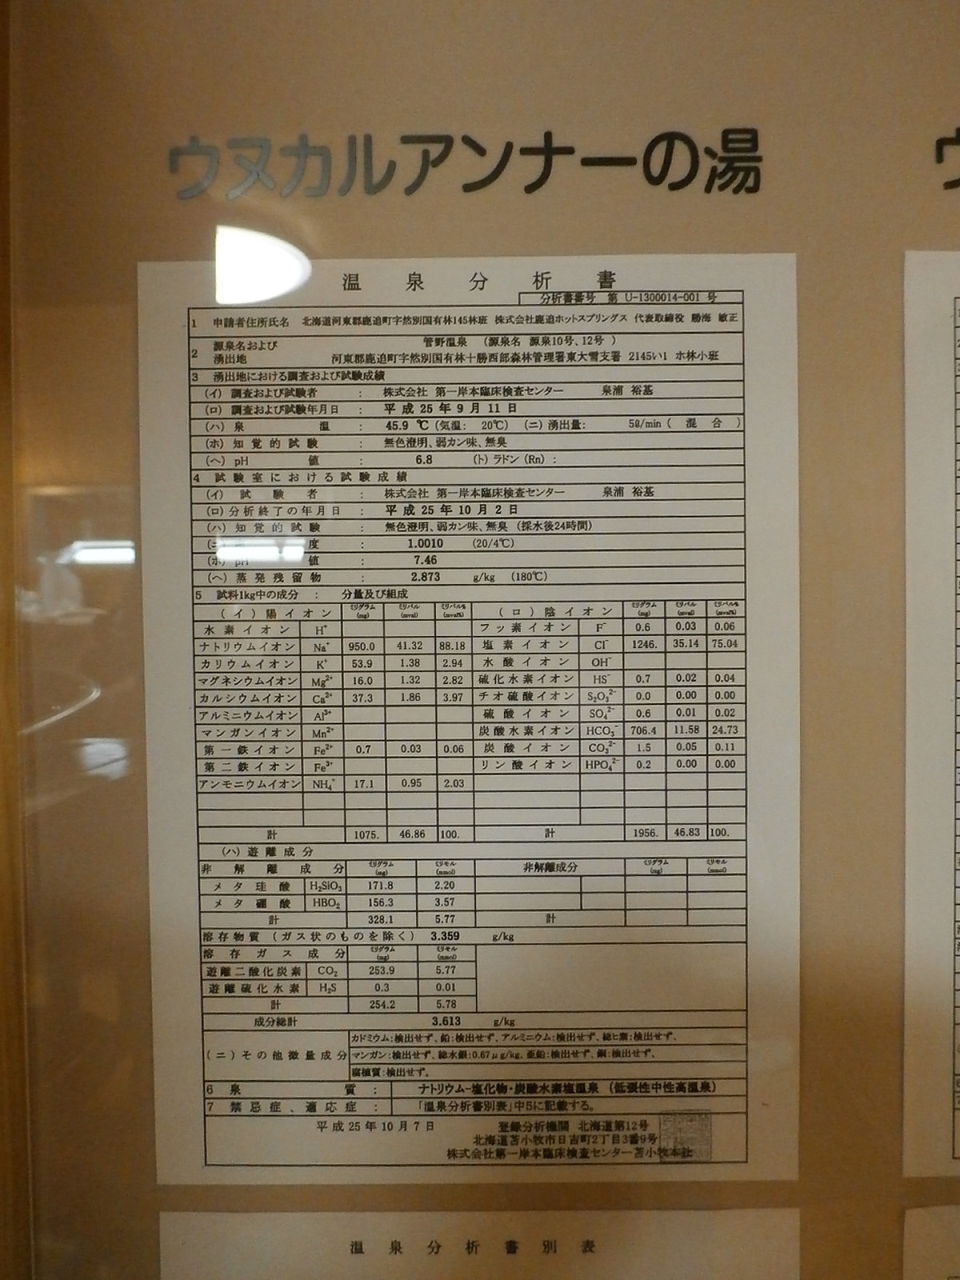 ウヌカルアンナーの湯
温泉分析書
分析書番号 第 U-1300014-001 号
1 申請者住所氏名 北海道河東郡鹿追町字然別国有林145林班 株式会社鹿追ホットスプリングス 代表取締役 勝海 敏正
2 源泉名および湧出地 菅野温泉 (源泉名 源泉10号、12号)
河東郡鹿追町字然別国有林十勝西部森林管理署東大雪支署 2145い1 ホ林小班
3 湧出地における調査および試験成績
(イ) 調査および試験者 : 株式会社 第一岸本臨床検査センター 泉浦 裕基
(ロ) 調査および試験年月日 : 平成25年9月11日
(ハ) 泉温 : 45.9 ℃ (気温: 20℃) (ニ) 湧出量: 58/min ( 混合 )
(ホ) 知覚的試験 : 無色澄明、弱カン味、無臭
(ヘ) pH 値 : 6.8 (ト) ラドン (Rn) :
4 試験室における試験成績
(イ) 試験者 : 株式会社 第一岸本臨床検査センター 泉浦 裕基
(ロ) 分析終了の年月日 : 平成25年10月2日
(ハ) 知覚的試験 : 無色澄明、弱カン味、無臭 (採水後24時間)
(ニ) 度 : 1.0010 (20/4℃)
(ホ) pH 値 : 7.46
(ヘ) 蒸発残留物 : 2.873 g/kg (180℃)
5 試料1kg中の成分 : 分量及び組成
(イ) 陽イオン ミリグラム (mg) ミリバル (mval) ミリバル% (mval%) (ロ) 陰イオン ミリグラム (mg) ミリバル (mval) ミリバル% (mval%)
水素イオン H⁺ フッ素イオン F⁻ 0.6 0.03 0.06
ナトリウムイオン Na⁺ 950.0 41.32 88.18 塩素イオン Cl⁻ 1246. 35.14 75.04
カリウムイオン K⁺ 53.9 1.38 2.94 水酸イオン OH⁻
マグネシウムイオン Mg²⁺ 16.0 1.32 2.82 硫化水素イオン HS⁻ 0.7 0.02 0.04
カルシウムイオン Ca²⁺ 37.3 1.86 3.97 チオ硫酸イオン S₂O₃²⁻ 0.0 0.00 0.00
アルミニウムイオン Al³⁺ 硫酸イオン SO₄²⁻ 0.6 0.01 0.02
マンガンイオン Mn²⁺ 炭酸水素イオン HCO₃⁻ 706.4 11.58 24.73
第一鉄イオン Fe²⁺ 0.7 0.03 0.06 炭酸イオン CO₃²⁻ 1.5 0.05 0.11
第二鉄イオン Fe³⁺ リン酸イオン HPO₄²⁻ 0.2 0.00 0.00
アンモニウムイオン NH₄⁺ 17.1 0.95 2.03
計 1075. 46.86 100. 計 1956. 46.83 100.
(ハ) 遊離成分
非解離成分 ミリグラム (mg) ミリモル (mmol) 非解離成分 ミリグラム (mg) ミリモル (mmol)
メタ珪酸 H₂SiO₃ 171.8 2.20
メタ硼酸 HBO₂ 156.3 3.57
計 328.1 5.77 計
溶存物質 (ガス状のものを除く) 3.359 g/kg
溶存ガス成分 ミリグラム (mg) ミリモル (mmol)
遊離二酸化炭素 CO₂ 253.9 5.77
遊離硫化水素 H₂S 0.3 0.01
計 254.2 5.78
成分総計 3.613 g/kg
(ニ) その他微量成分 カドミウム:検出せず、鉛:検出せず、アルミニウム:検出せず、総ヒ素:検出せず、
マンガン:検出せず、総水銀:0.67μg/kg、亜鉛:検出せず、銅:検出せず、
腐植質:検出せず。
6 泉質 : ナトリウム-塩化物・炭酸水素塩温泉 (低張性中性高温泉)
7 禁忌症、適応症 : 「温泉分析書別表」中5に記載する。
平成25年10月7日 登録分析機関 北海道第12号
北海道苫小牧市日吉町2丁目3番9号
株式会社第一岸本臨床検査センター苫小牧本社
温泉分析書別表